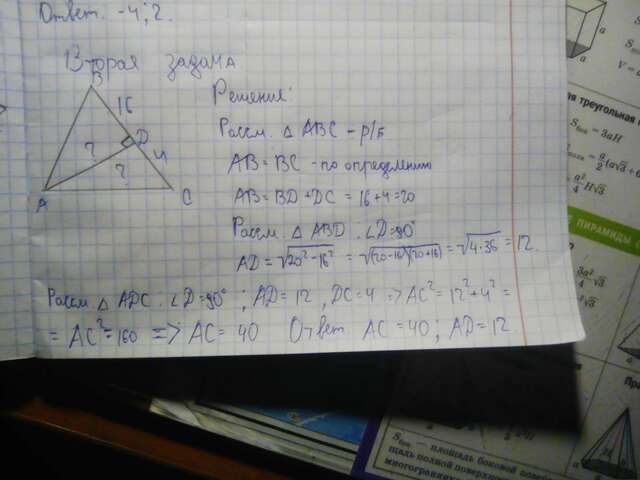 Ответ. -4; 2.
Вторая задача
B
16
D
4
?
?
A
C
Решение:
Рассм. △ ABC - р/б
AB = BC - по определению
AB = BD + DC = 16 + 4 = 20
Рассм. △ ABD : ∠D = 90°
AD = √20² - 16² = √(20-16)(20+16) = √4·36 = 12.
Рассм △ ADC : ∠D = 90° ; AD = 12 , DC = 4 => AC² = 12² + 4² =
= AC² = 160 => AC = 40 Ответ. AC = 40 ; AD = 12.
a
a
V = a
ая треугольная п
Sбок = 3aH
a²/4 H√3
Е ПИРАМИДЫ
3a²/4
a²√3
Пра
H
Sбок — площадь боковой повер
щадь полной поверхно
многогранни